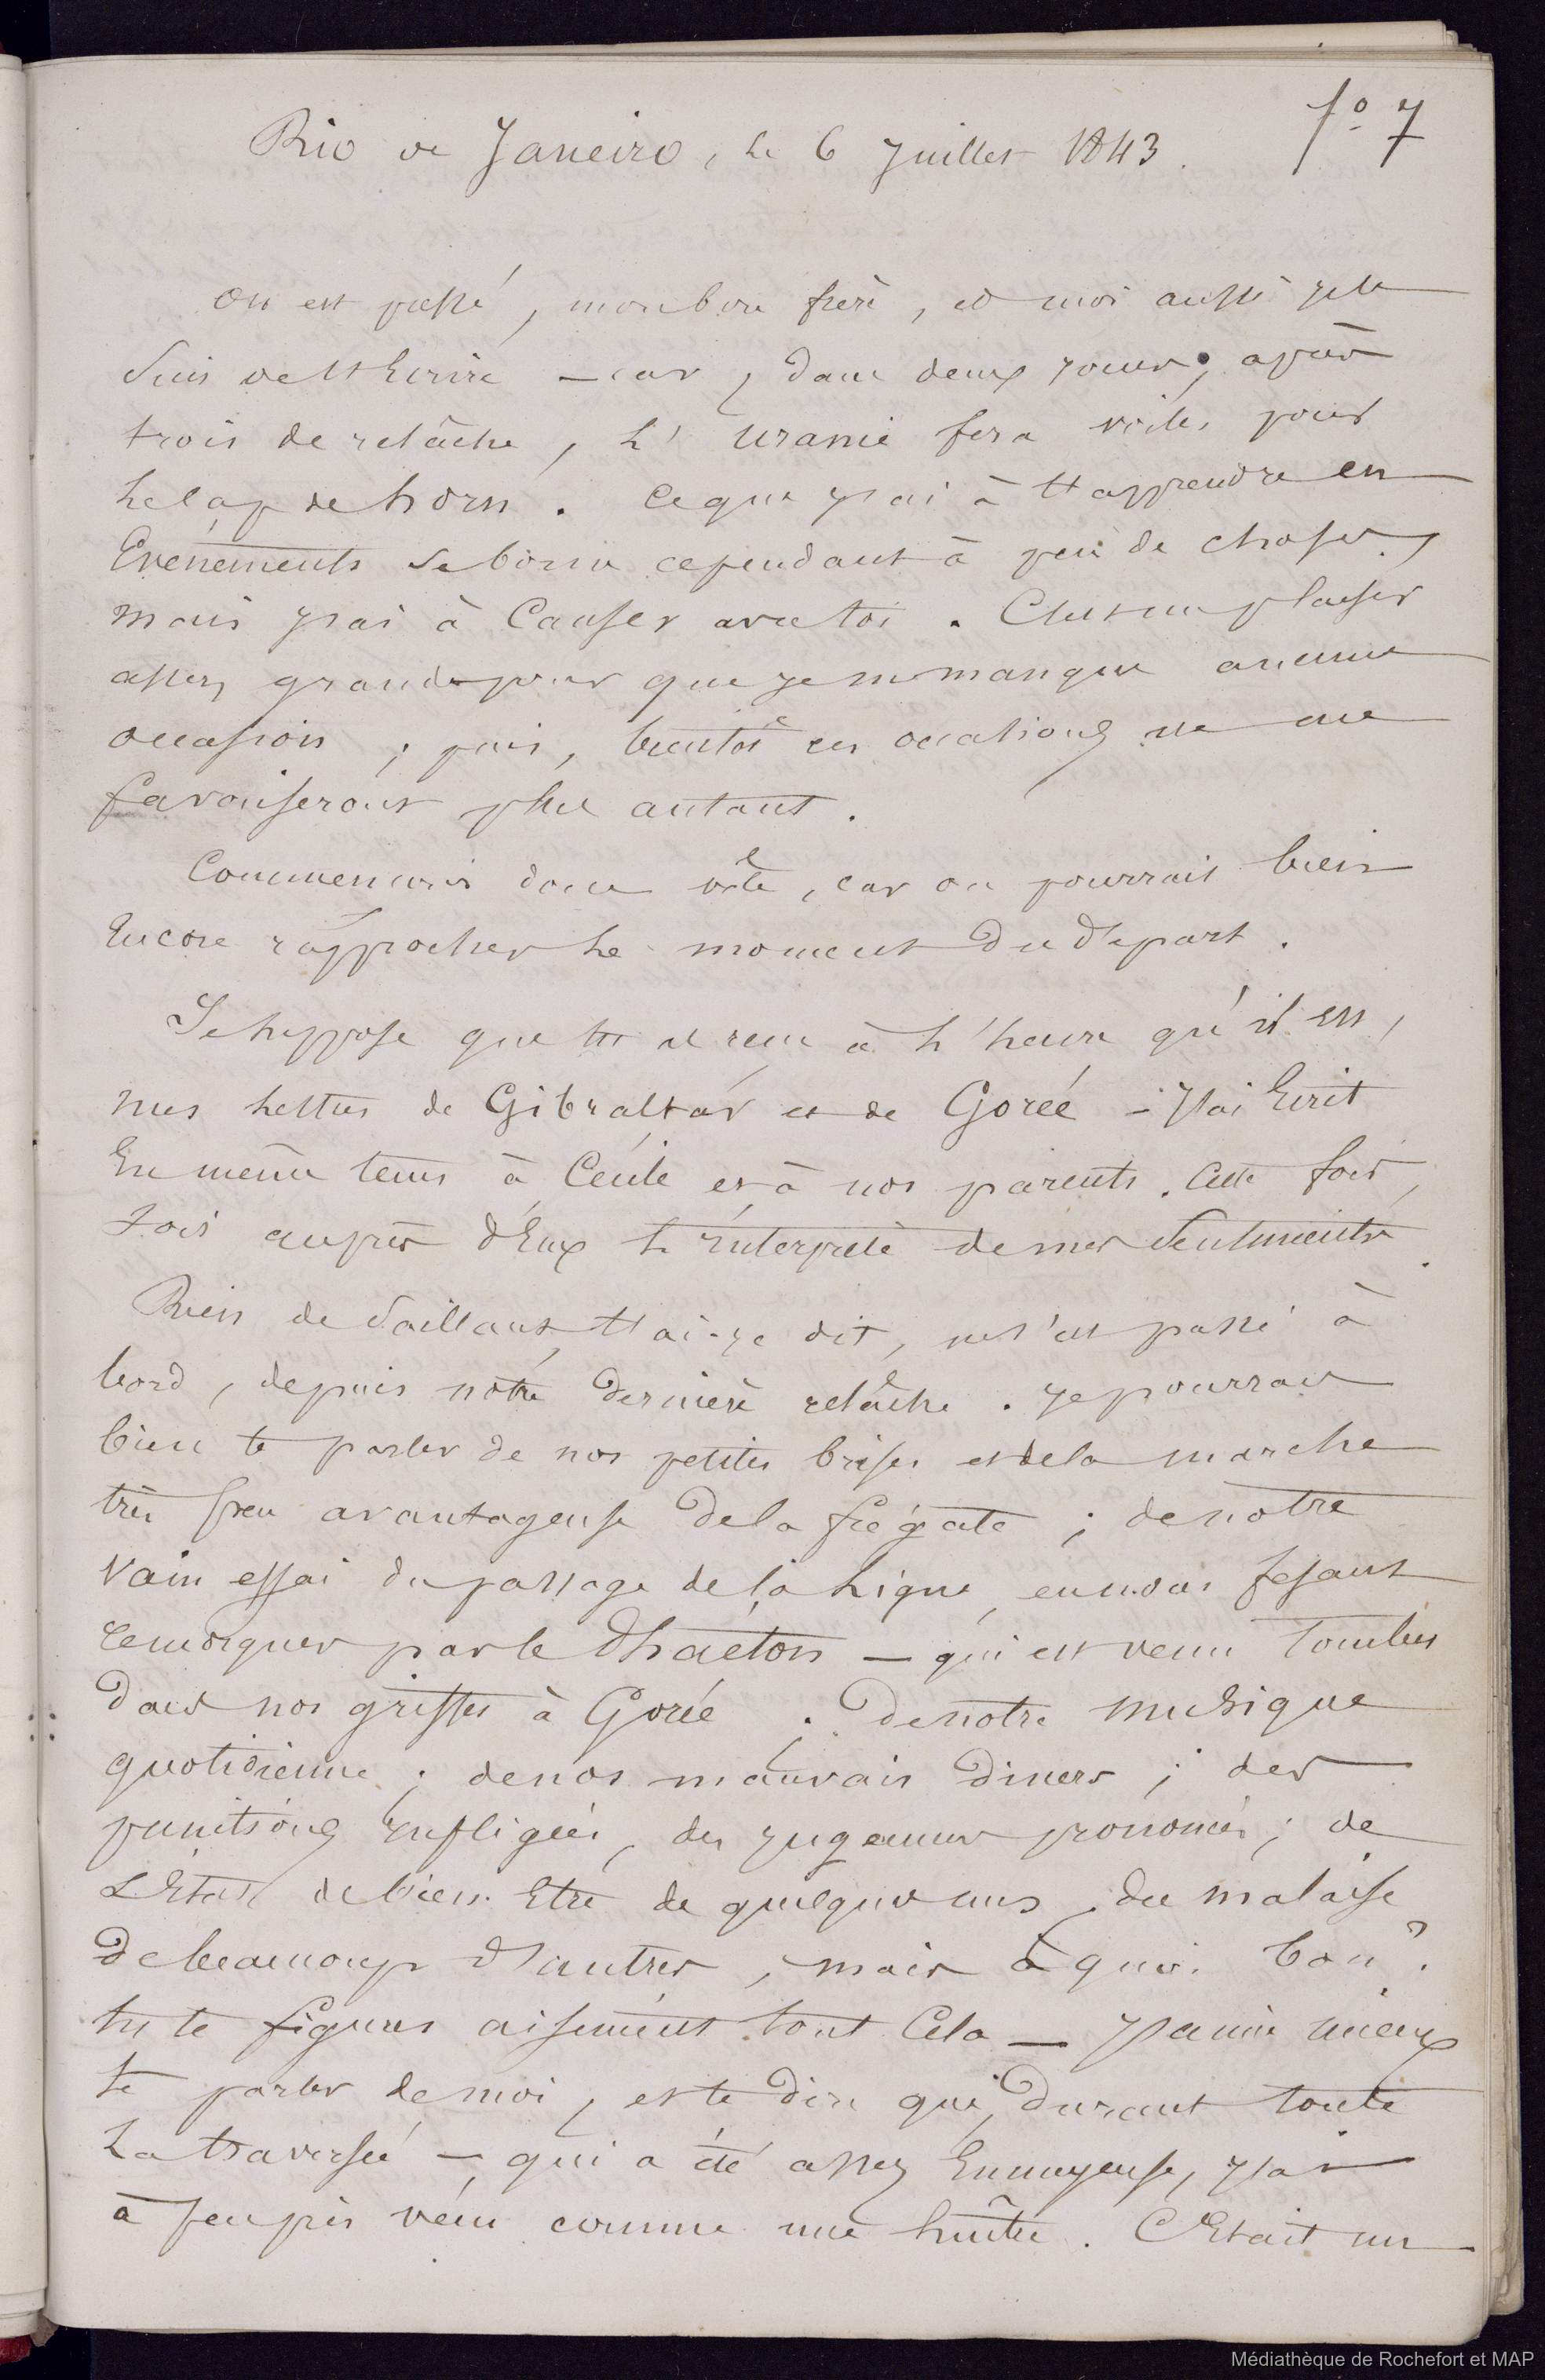 fo 7
Rio de Janeiro, le 6 Juillet 1843.
On est pressé, mon bon frère, et moi aussi je le
suis de t'Ecrire — car, dans deux jours, après
trois de relâche, L'Uranie fera voiles pour
le Cap de horn. Ce que j'ai à t'apprendre en
Evénements se borne cependant à peu de choses,
mais j'ai à Causer avec toi. C'est un plaisir
assez grand pour que je n'en manque aucune
occasion ; puis, bientôt ces occations ne me
favoriseront plus autant.
Commençons donc vite, car on pourrait bien
Encore rapprocher le moment du départ.
Je suppose que tu as reçu à l'heure qu'il est,
mes lettres de Gibraltar et de Gorée — j'ai Ecrit
En même tems à Cécile et à nos parents. Cette fois,
sois auprès d'Eux l'interprète de mes Sentiments.
Rien de Saillant, t'ai-je dit, ne s'est passé à
bord, depuis notre dernière relâche. je pourrais
bien te parler de nos petites brises et de la marche
très peu avantageuse de la frégate ; de notre
vain essai du passage de la Ligne, en nous fesant
remorquer par le Phaéton — qui est venu tomber
dans nos griffes à Gorée. De notre musique
quotidienne ; de nos mauvais diners ; des
punitions infligées, des jugemens prononcés ; de
L'Etat de bien Etre de quelques uns, du malaise
de beaucoup d'autres, mais à quoi bon ?
tu te figures aisément tout Cela — J'aime mieux
te parler de moi, et te dire que, durant toute
La traversée — qui a été assez Ennuyeuse, j'ai
à peu près vécu comme une huître. C'Etait un
Médiathèque de Rochefort et MAP